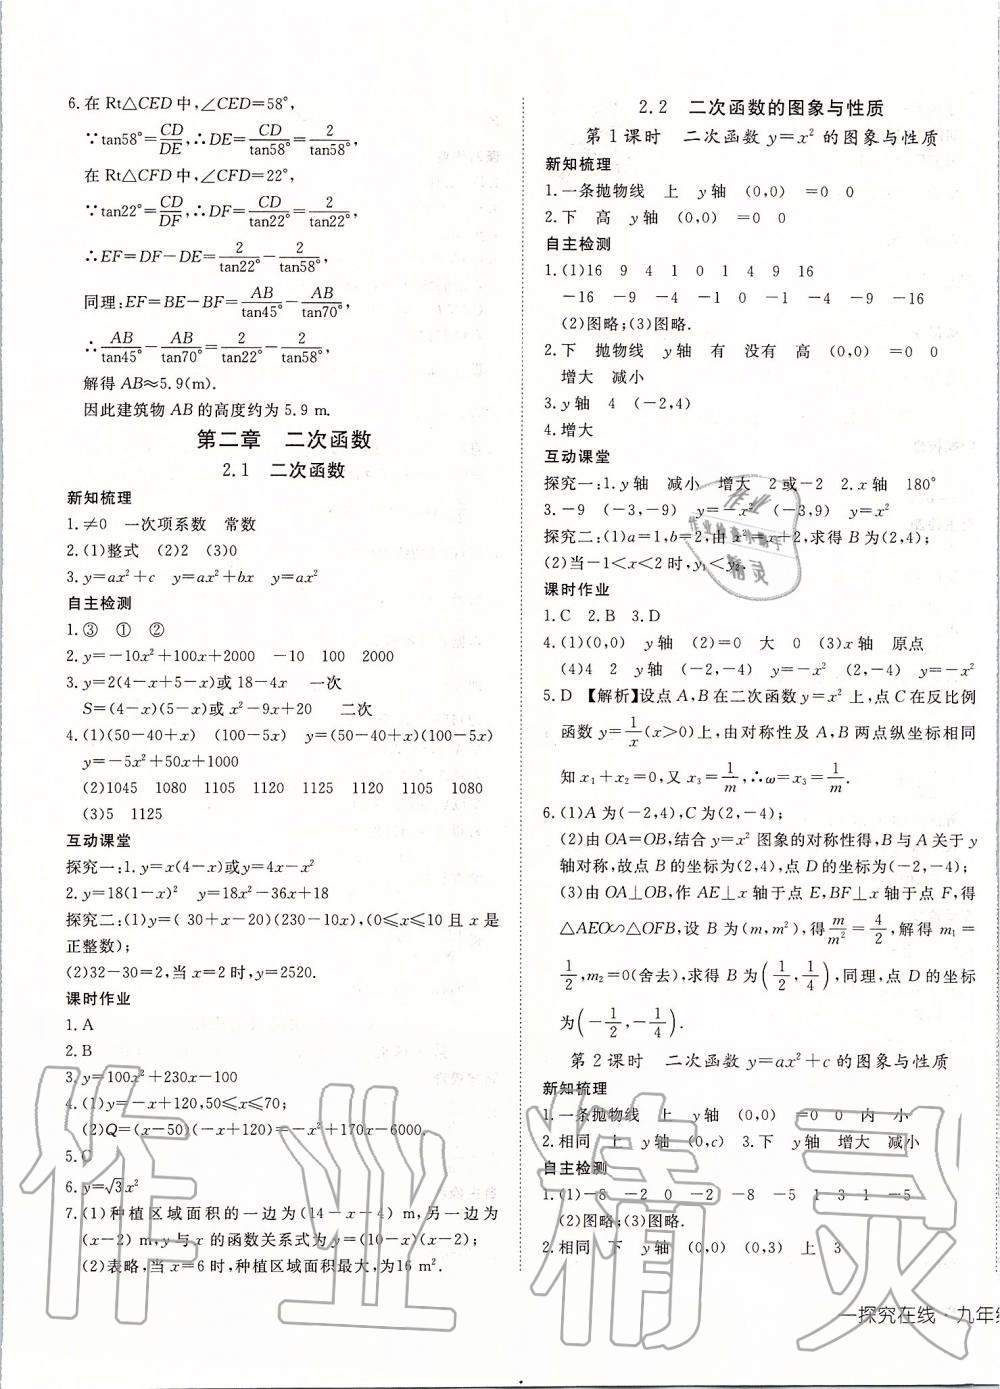 6.在 Rt△CED 中,∠CED=58°,
∵tan58°=CD/DE,∴DE=CD/tan58°=2/tan58°,
在 Rt△CFD 中,∠CFD=22°,
∵tan22°=CD/DF,∴DF=CD/tan22°=2/tan22°,
∴EF=DF-DE=2/tan22°-2/tan58°,
同理:EF=BE-BF=AB/tan45°-AB/tan70°,
∴AB/tan45°-AB/tan70°=2/tan22°-2/tan58°,
解得 AB≈5.9(m).
因此建筑物 AB 的高度约为 5.9 m.
第二章 二次函数
2.1 二次函数
新知梳理
1.≠0 一次项系数 常数
2.(1)整式 (2)2 (3)0
3.y=ax²+c y=ax²+bx y=ax²
自主检测
1.③ ① ②
2.y=-10x²+100x+2000 -10 100 2000
3.y=2(4-x+5-x)或 18-4x 一次
S=(4-x)(5-x)或 x²-9x+20 二次
4.(1)(50-40+x) (100-5x) y=(50-40+x)(100-5x)
y=-5x²+50x+1000
(2)1045 1080 1105 1120 1125 1120 1105 1080
(3)5 1125
互动课堂
探究一:1.y=x(4-x)或 y=4x-x²
2.y=18(1-x)² y=18x²-36x+18
探究二:(1)y=( 30+x-20)(230-10x),(0≤x≤10 且 x 是
正整数);
(2)32-30=2,当 x=2 时,y=2520.
课时作业
1.A
2.B
3.y=100x²+230x-100
4.(1)y=-x+120,50≤x≤70;
(2)Q=(x-50)(-x+120)=-x²+170x-6000.
5.C
6.y=√3x²
7.(1)种植区域面积的一边为(14-x-4) m,另一边为
(x-2) m,y 与 x 的函数关系式为 y=(10-x)(x-2);
(2)表略,当 x=6 时,种植区域面积最大,为16 m².
2.2 二次函数的图象与性质
第 1 课时 二次函数 y=x² 的图象与性质
新知梳理
1.一条抛物线 上 y 轴 (0,0) =0 0
2.下 高 y 轴 (0,0) =0 0
自主检测
1.(1)16 9 4 1 0 1 4 9 16
-16 -9 -4 -1 0 -1 -4 -9 -16
(2)图略;(3)图略.
2.下 抛物线 y 轴 有 没有 高 (0,0) =0 0
增大 减小
3.y 轴 4 (-2,4)
4.增大
互动课堂
探究一:1.y 轴 减小 增大 2 或-2 2.x 轴 180°
3.-9 (-3,-9) y=-x² (-3,9) y=x²
探究二:(1)a=1,b=2,由 x²=x+2,求得 B 为(2,4);
(2)当-1<x<2 时,y₁<y₂.
课时作业
1.C 2.B 3.D
4.(1)(0,0) y 轴 (2)=0 大 0 (3)x 轴 原点
(4)4 2 y 轴 (-2,-4) y=-x² (2,-4) y=-x²
5.D 【解析】设点 A,B 在二次函数 y=x² 上,点 C 在反比例
函数 y=1/x(x>0)上,由对称性及 A,B 两点纵坐标相同
知 x₁+x₂=0,又 x₃=1/m,∴ω=x₃=1/m.
6.(1)A 为(-2,4),C 为(2,-4);
(2)由 OA=OB,结合 y=x² 图象的对称性得,B 与 A 关于 y
轴对称,故点 B 的坐标为(2,4),点 D 的坐标为(-2,-4);
(3)由 OA⊥OB,作 AE⊥x 轴于点 E,BF⊥x 轴于点 F,得
△AEO∽△OFB,设 B 为(m,m²),得m/m²=4/2,解得 m₁=
1/2,m₂=0(舍去),求得 B 为(1/2,1/4),同理,点 D 的坐标
为(-1/2,-1/4).
第 2 课时 二次函数 y=ax²+c 的图象与性质
新知梳理
1.一条抛物线 上 y 轴 (0,0) =0 0 内 小
2.相同 上 y 轴 (0,c) 3.下 y 轴 增大 减小
自主检测
1.(1)-8 -2 0 -2 -8 -5 1 3 1 -5
(2)图略;(3)图略.
2.相同 下 y 轴 (0,0) (0,3) 上 3
一探究在线·九年级
作业精灵